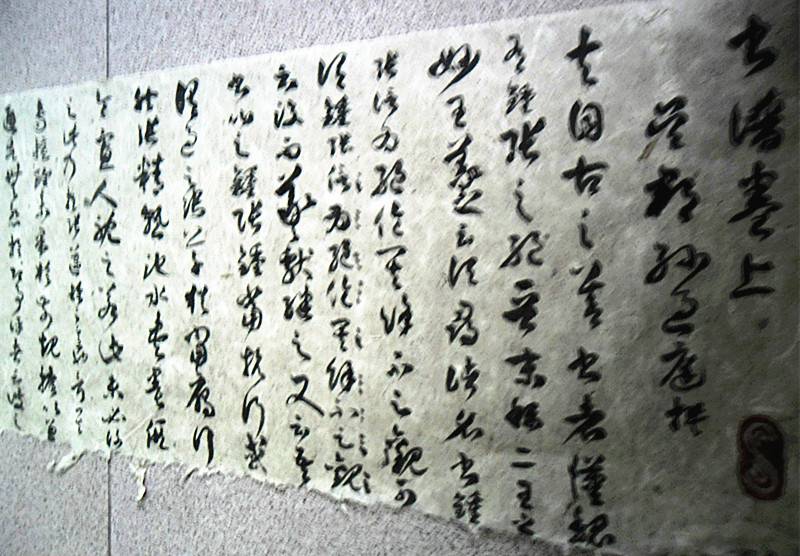 書譜卷上
吳郡孫過庭撰
夫自古之善書者漢魏
有鍾張之絕晉末稱二王之
妙王羲之云頃尋諸名書鍾
張信為絕倫其餘不足觀可
謂鍾張信為絕倫其餘不足觀
云沒而羲獻繼之又云吾
書比之鍾張鍾當抗行或
謂過之張草猶當雁行
然張精熟池水盡墨假
令寡人耽之若此未必謝
之此乃推張邁鍾之意也考其
專擅雖未果於前規摭以兼